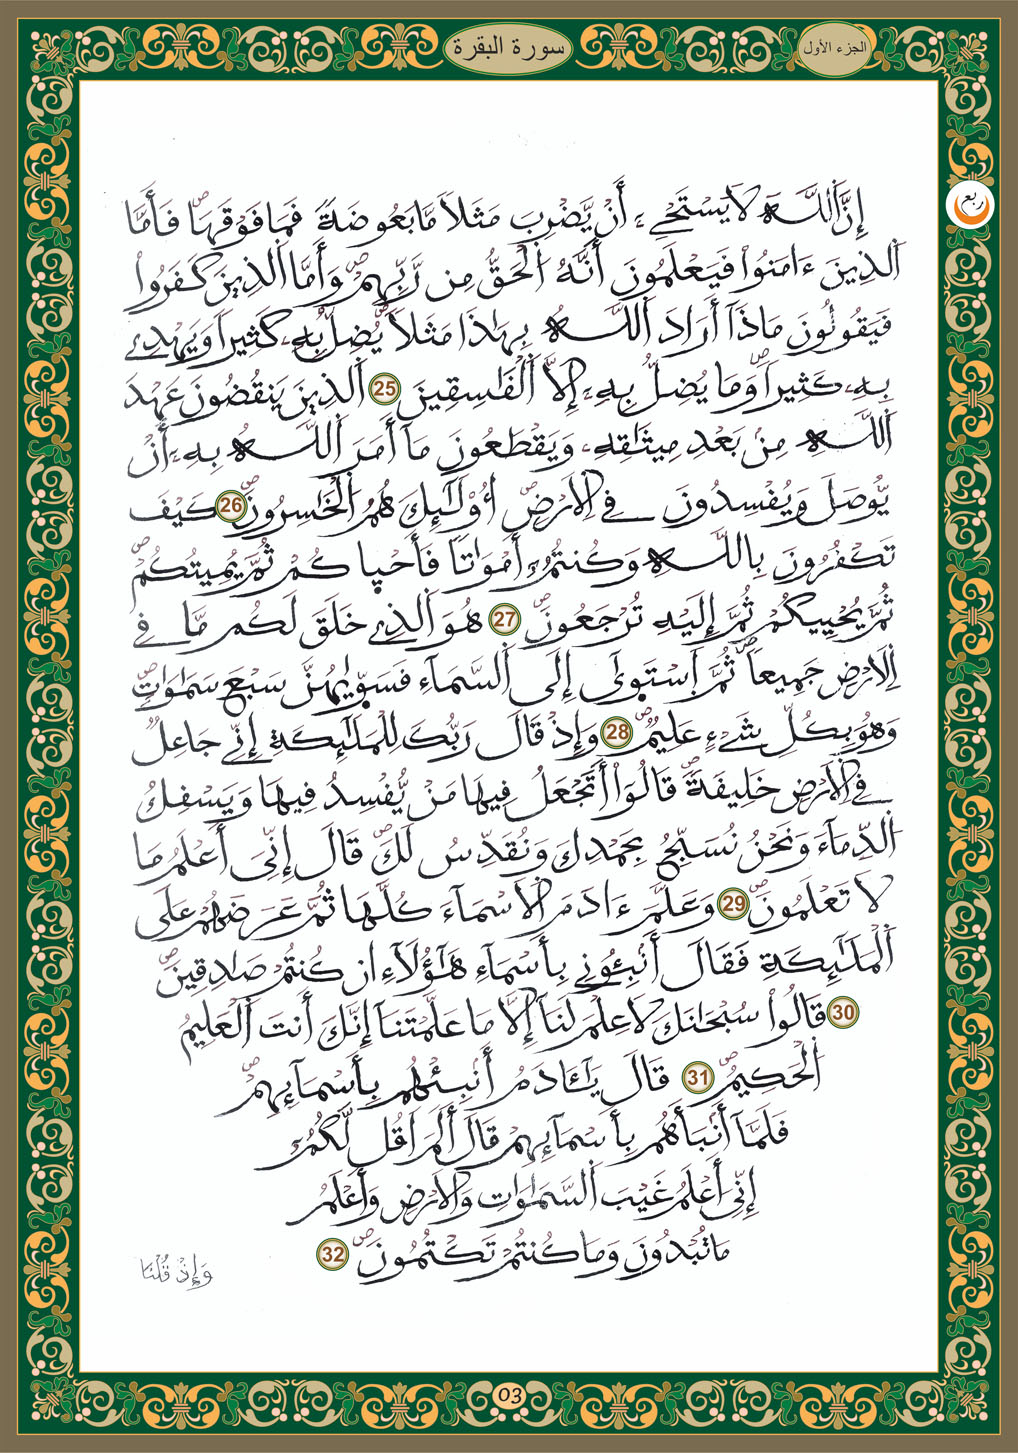 الجزء الأول
سورة البقرة
ربع
إِنَّ اَللَّهَ لَا يَسْتَحْيِۦ أَنْ يَّضْرِبَ مَثَلاً مَّا بَعُوضَةً فَمَا فَوْقَهَاۖ فَأَمَّا
اَلذِينَ ءَامَنُواْ فَيَعْلَمُونَ أَنَّهُ اُلْحَقُّ مِن رَّبِّهِمْۖ وَأَمَّا اَلذِينَ كَفَرُواْ
فَيَقُولُونَ مَاذَآ أَرَادَ اَللَّهُ بِهَٰذَا مَثَلاً يُضِلُّ بِهِۦ كَثِيراً وَيَهْدِے
بِهِۦ كَثِيراًۖ وَمَا يُضِلُّ بِهِۦٓ إِلَّا اَلْفَٰسِقِينَ 25 اَلذِينَ يَنقُضُونَ عَهْدَ
اَللَّهِ مِنۢ بَعْدِ مِيثَٰقِهِۦ وَيَقْطَعُونَ مَآ أَمَرَ اَللَّهُ بِهِۦٓ أَنْ
يُّوصَلَ وَيُفْسِدُونَ فِے اِلَارْضِۖ أُوْلَٰٓئِكَ هُمُ اُلْخَٰسِرُونَۖ 26 كَيْفَ
تَكْفُرُونَ بِاللَّهِ وَكُنتُمُۥٓ أَمْوَٰتاً فَأَحْيٰ۪اكُمْ ثُمَّ يُمِيتُكُمْۖ
ثُمَّ يُحْيِيكُمْ ثُمَّ إِلَيْهِ تُرْجَعُونَۖ 27 هُوَ اَلذِے خَلَقَ لَكُم مَّا فِے
اِلَارْضِ جَمِيعاًۖ ثُمَّ اَسْتَو۪يٰٓ إِلَى اَلسَّمَآءِ فَسَوّ۪يٰهُنَّ سَبْعَ سَمَٰوَٰتٖۖ
وَهُوَ بِكُلِّ شَےْءٍ عَلِيمٞۖ 28 وَإِذْ قَالَ رَبُّكَ لِلْمَلَٰٓئِكَةِ إِنِّے جَاعِلٞ
فِے اِلَارْضِ خَلِيفَةٗۖ قَالُوٓاْ أَتَجْعَلُ فِيهَا مَنْ يُّفْسِدُ فِيهَا وَيَسْفِكُ
اُلدِّمَآءَ وَنَحْنُ نُسَبِّحُ بِحَمْدِكَ وَنُقَدِّسُ لَكَۖ قَالَ إِنِّيَ أَعْلَمُ مَا
لَا تَعْلَمُونَۖ 29 وَعَلَّمَ ءَادَمَ اَلَاسْمَآءَ كُلَّهَا ثُمَّ عَرَضَهُمْ عَلَى
اَلْمَلَٰٓئِكَةِ فَقَالَ أَنۢبِـُٔونِے بِأَسْمَآءِ هَٰٓؤُلَآءِ ان كُنتُمْ صَٰدِقِينَۖ
30 قَالُواْ سُبْحَٰنَكَ لَا عِلْمَ لَنَآ إِلَّا مَا عَلَّمْتَنَآ إِنَّكَ أَنتَ اَلْعَلِيمُ
اُلْحَكِيمُۖ 31 قَالَ يَٰٓـَٔادَمُ أَنۢبِئْهُم بِأَسْمَآئِهِمْۖ
فَلَمَّآ أَنۢبَأَهُم بِأَسْمَآئِهِمْ قَالَ أَلَمَ اَقُل لَّكُمُۥٓ
إِنِّيَ أَعْلَمُ غَيْبَ اَلسَّمَٰوَٰتِ وَالَارْضِ وَأَعْلَمُ
مَا تُبْدُونَ وَمَا كُنتُمْ تَكْتُمُونَۖ 32
وَإِذْ قُلْنَا
03